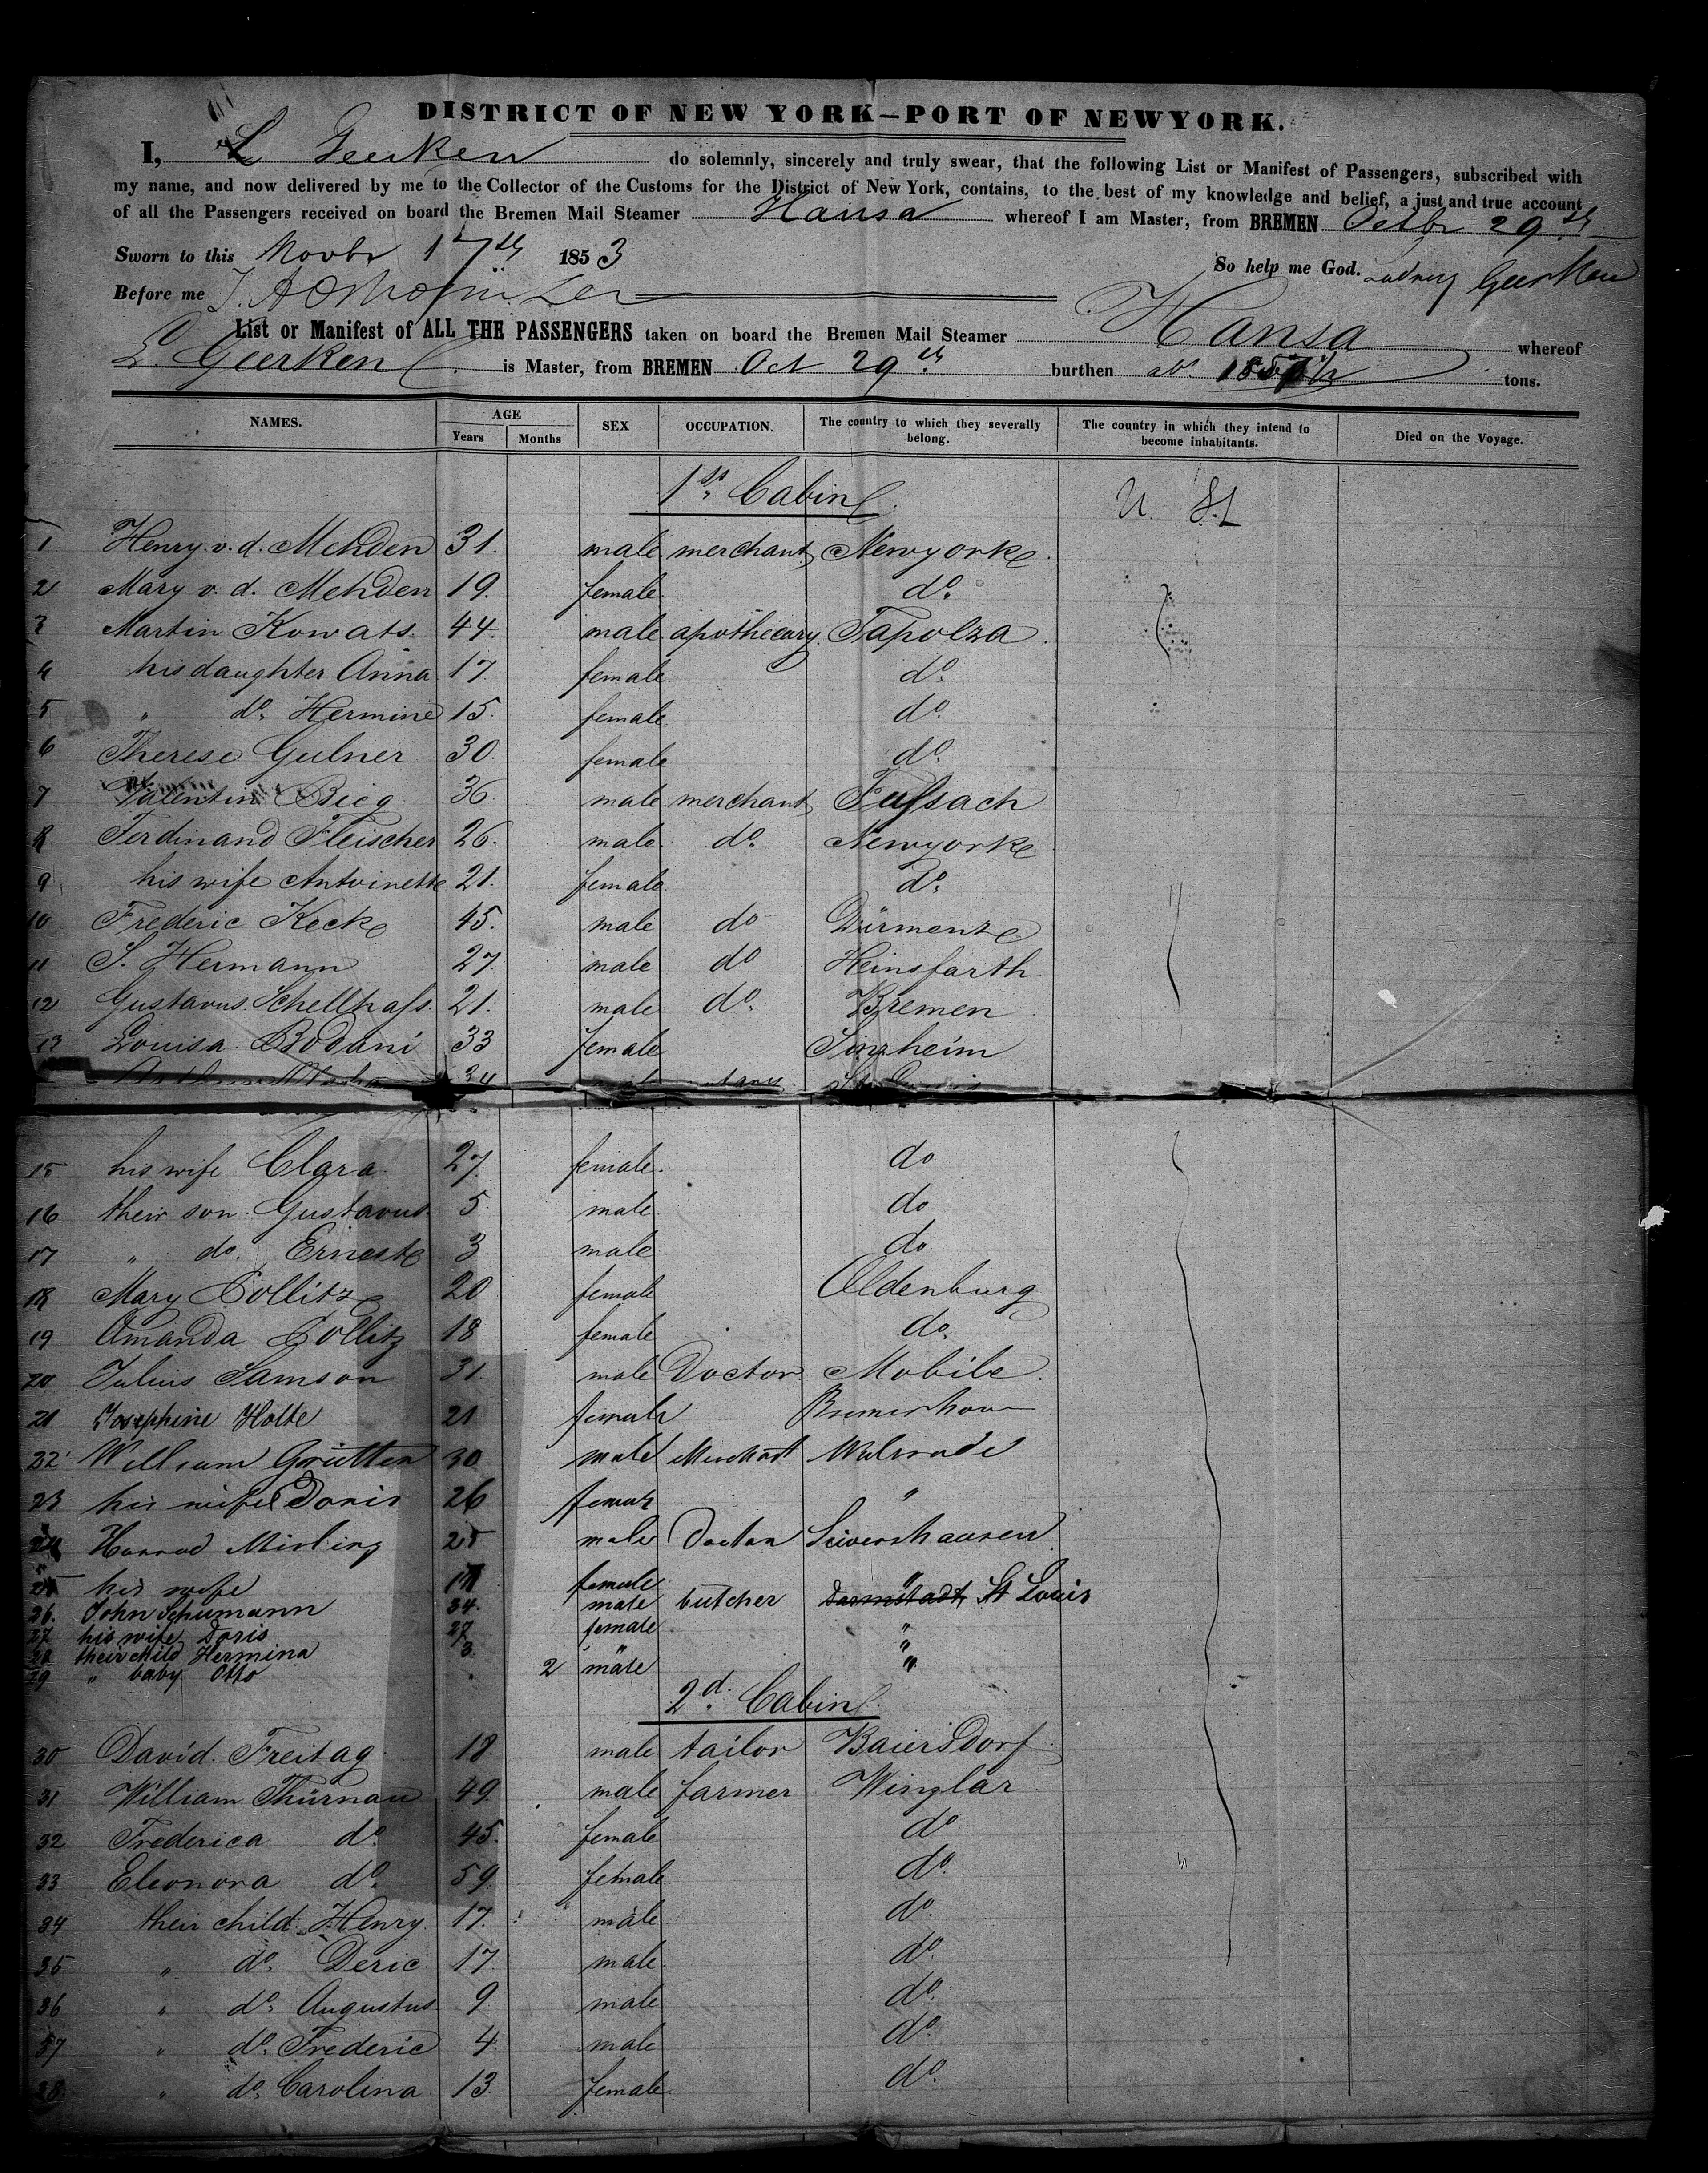 DISTRICT OF NEW YORK—PORT OF NEWYORK.
I, L Geerken do solemnly, sincerely and truly swear, that the following List or Manifest of Passengers, subscribed with
my name, and now delivered by me to the Collector of the Customs for the District of New York, contains, to the best of my knowledge and belief, a just and true account
of all the Passengers received on board the Bremen Mail Steamer Hansa whereof I am Master, from BREMEN Octbr 29th
Sworn to this Novbr 17th 1853 So help me God.
Before me Geerken
List or Manifest of ALL THE PASSENGERS taken on board the Bremen Mail Steamer Hansa whereof
L. Geerken is Master, from BREMEN Oct 29th burthen tons.
NAMES. AGE Years Months SEX OCCUPATION. The country to which they severally belong. The country in which they intend to become inhabitants. Died on the Voyage.
1st Cabin U. St
1 Henry v. d. Mehden 31. male merchant Newyork
2 Mary v. d. Mehden 19. female do.
3 Martin Kowats 44. male apothecary Tapolza
4 his daughter Anna 17. female do.
5 " do. Hermine 15. female do.
6 Therese Gulner 30. female do.
7 Valentin Bicg 36. male merchant Fussach
8 Ferdinand Fleischer 26. male do. Newyork
9 his wife Antoinette 21. female do.
10 Frederic Keck 45. male do Dürmenz
11 S. Hermann 27. male do Heinsfarth
12 Gustavus Schellhass 21. male do. Bremen
13 Louisa Bodani 33 female Sinzheim
34
15 his wife Clara 27. female. do
16 their son Gustavus 5. male do
17 " do. Ernest 3 male do
18 Mary Collitz 20 female Oldenburg
19 Amanda Collitz 18 female do.
20 Julius Samson 31. male Doctor Mobile.
21 Josephine Holte 21 female
22 William Grütter 30 male Merchant Walsrode
23 his wife Doris 26 female "
24 Mirling 25 male Doctor Sievershausen
25 his wife female "
26. John Schumann 34. male butcher Darmstadt St Louis
27 his wife Doris 27 female "
28 their child Hermina 3 " "
29 " baby Otto 2 male "
2d. Cabin
30 David Freitag 18. male tailor Baiersdorf
31 William Thürnau 49. male farmer Winzlar
32 Frederica do. 45. female do
33 Eleonora do. 59. female do.
34 their child Henry 17. male do.
35 " do. Deric 17. male do.
36 " do. Augustus 9 male do.
37 " do. Frederic 4 male do.
38. " do. Carolina 13 female do.